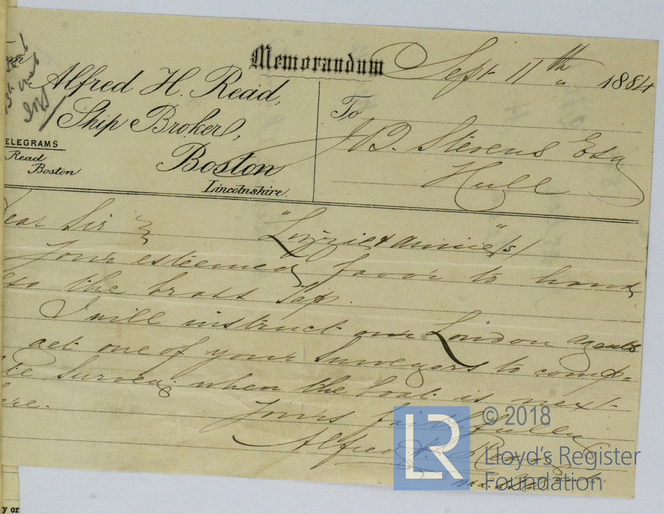 Memorandum Sept 11th 1884
Alfred H. Read,
Ship Broker,
Boston
Lincolnshire.
TELEGRAMS
Read
Boston
To
Stevens Esq
Hull
ear Sir
"Lizzie & Annie" (s)
Your esteemed favor to hand
to the brass Tap.
I will instruct our London agents
act one of your Surveyors to comp-
te Survey when the boat is next
ere.
Yours faithfully
Alfred H. Read
© 2018
LR
Lloyd's Register
Foundation
y or